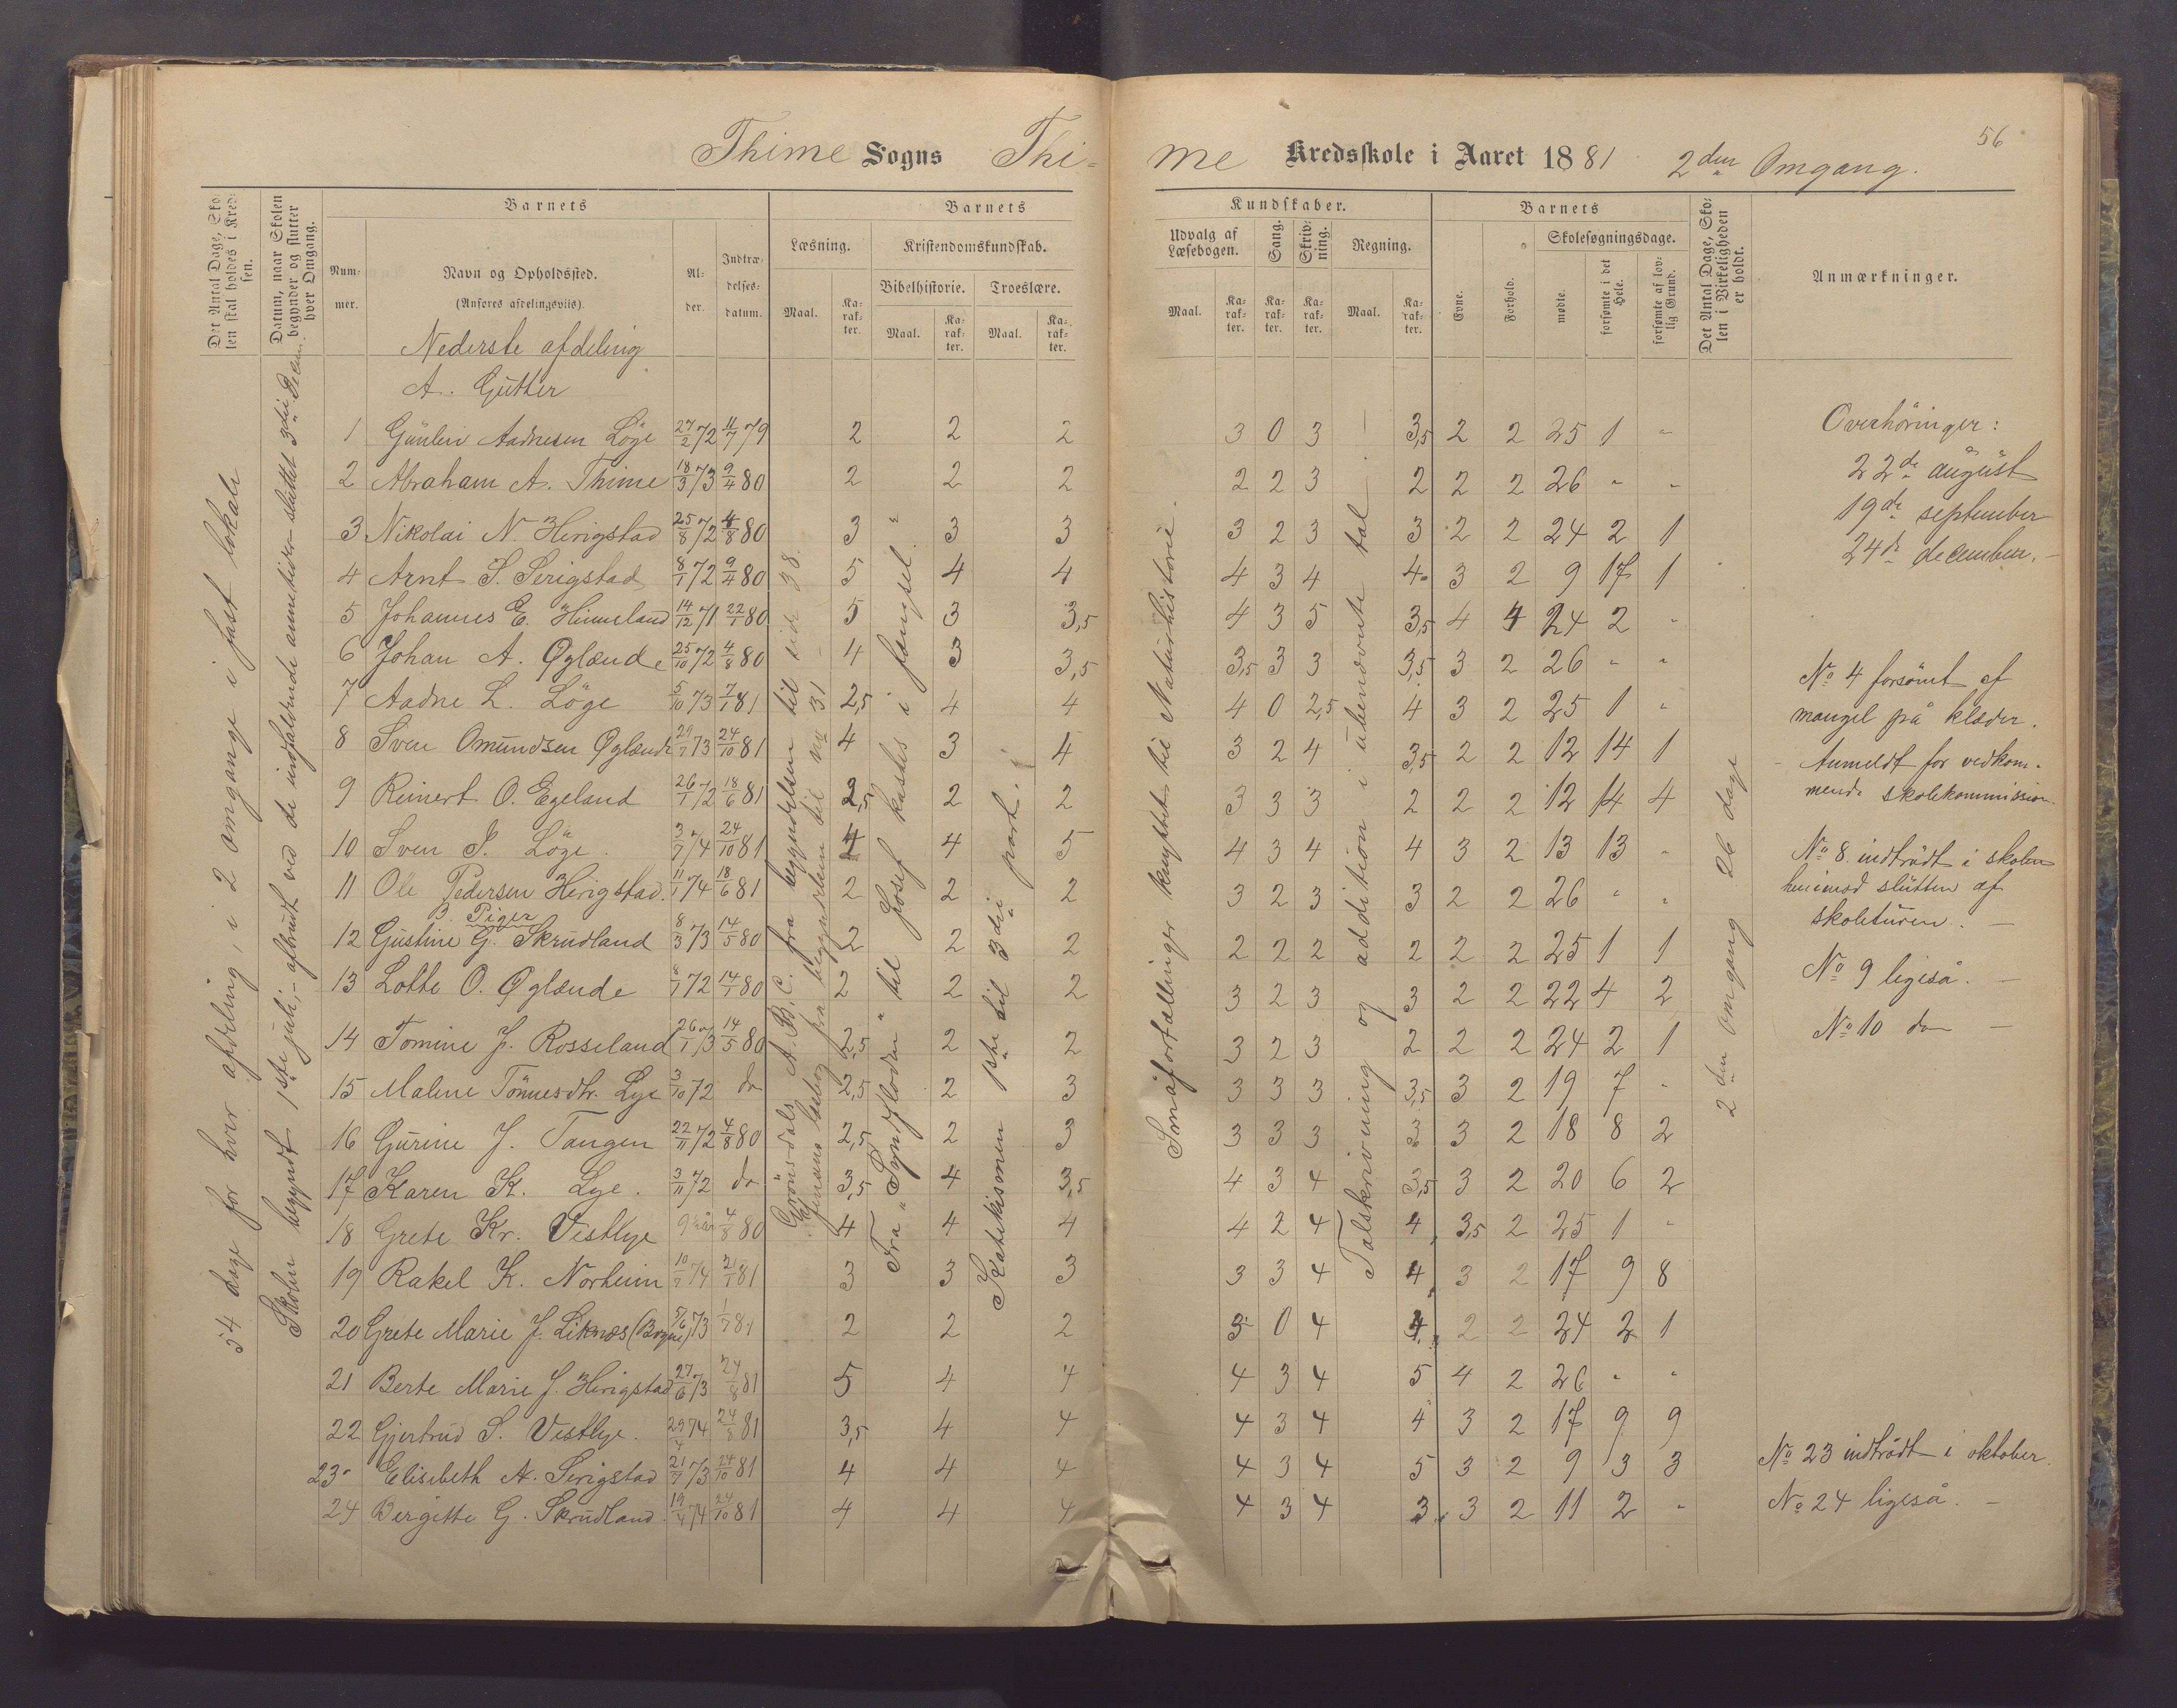 56
Thime Sogns Thi-
me Kredsskole i Aaret 1881 2den Omgang.
Det Antal Dage, Sko-
len skal holdes i Kred-
sen.
Datum, naar Skolen
begynder og slutter
hver Omgang.
Barnets
Num-
mer.
Navn og Opholdssted.
(Anføres afdelingsviis).
Al-
der.
Indtræ-
delses-
datum.
Barnets
Læsning.
Maal.
Ka-
rak-
ter.
Kristendomskundskab.
Bibelhistorie.
Maal.
Ka-
rak-
ter.
Troeslære.
Maal.
Ka-
rak-
ter.
Kundskaber.
Udvalg af
Læsebogen.
Maal.
Ka-
rak-
ter.
Sang.
Ka-
rak-
ter.
Skriv-
ning.
Ka-
rak-
ter.
Regning.
Maal.
Ka-
rak-
ter.
Barnets
Evne.
Forhold.
Skolesøgningsdage.
mødte.
forsømte i det
Hele.
forsømte af lov-
lig Grund.
Det Antal Dage, Sko-
len i Virkeligheden
er holdt.
Anmærkninger.
54 dage for hver afdeling, i 2 omgange i fast lokale
Skolen begyndt 1ste juli,- afbrudt ved de indfaldende annetider- sluttet 3die Decem.
Nederste afdeling
A. Gutter
1 Gunlev Aadnesen Löge 27/2 72 11/7 79 2 2 2 3 0 3 3,5 2 2 25 1 "
2 Abraham A. Thime 18/3 73 9/4 80 2 2 2 2 2 3 2 2 2 26 " "
3 Nikolai N. Herigstad 25/8 72 4/8 80 3 3 3 3 2 3 3 2 2 24 2 1
4 Arnt S. Serigstad 8/1 72 9/4 80 5 4 4 4 3 4 4 3 2 9 17 1
5 Johannes E. Hinneland 14/12 71 22/1 80 5 3 3,5 4 3 5 3,5 4 4 24 2 "
6 Johan A. Øglænde 25/10 72 4/8 80 4 3 3,5 3,5 3 3 3,5 3 2 26 " "
7 Aadne L. Löge 5/10 73 7/1 81 2,5 4 4 4 0 2,5 4 3 2 25 1 "
8 Sven Omundsen Øglænde 29/7 73 24/10 81 4 3 4 3 2 4 3,5 2 2 12 14 1
9 Reinert O. Egeland 26/1 72 18/6 81 2,5 2 2 3 3 3 2 2 2 12 14 4
10 Sven P. Löge. 3/7 74 24/10 81 4 4 5 4 3 4 4 3 2 13 13 "
11 Ole Pedersen Herigstad. 11/1 74 18/6 81 2 2 2 3 2 3 3 2 2 26 " "
B. Piger
12 Gustine G. Skrudland 8/3 73 14/5 80 2 2 2 2 2 2 2 2 2 25 1 1
13 Lotte O. Øglænde 8/1 72 14/1 80 2 2 2 3 2 3 3 2 2 22 4 2
14 Tomine J. Rosseland 26/1 73 14/5 80 2,5 2 2 3 2 3 2 2 2 24 2 1
15 Malene Tönnesdtr. Lye 3/10 72 do 2,5 2 3 3 3 3 3,5 3 2 19 7 "
16 Gurine J. Tangen 22/11 72 4/8 80 2,5 2 3 3 3 3 3 3 2 18 8 2
17 Karen K. Lye. 3/11 72 do 3,5 4 3,5 4 3 4 3,5 3 2 20 6 2
18 Grete Kr. Vestlye 9 1/2 år 4/8 80 4 4 4 4 2 4 4 3,5 2 25 1 "
19 Rakel K. Norheim 10/7 74 21/1 81 3 3 3 3 3 4 4 3 2 17 9 8
20 Grete Marie J. Liknæs (Bogne) 5/6 73 1/7 81 2 2 2 3 0 4 4 2 2 24 2 1
21 Berte Marie J. Herigstad 27/6 73 24/8 81 5 4 4 4 3 4 5 4 2 26 " "
22 Gjertrud S. Vestlye. 29/4 74 24/8 81 3,5 4 4 4 3 4 4 3 2 17 9 9
23 Elisebeth A. Serigstad 21/7 73 24/10 81 4 4 4 4 3 4 5 3 2 9 3 3
24 Bergitte G. Skrudland. 19/4 74 24/10 81 4 4 4 4 3 4 3 3 2 11 2 "
Grönsdals A.B.C. fra begyndelsen til side 38.
Jensens læsebog fra begyndelsen til no 31
Fra "Syndfloden" til Josef kastes i fængsel."
Katekismen 1ste til 3die part.
Småfortællinger knyttet til Naturhistorie.
Talskrivning og addition i ubenævnte tal.
2den omgang 26 dage
Overhöringer:
22de august
19de september
24de december.
No 4 forsömt af
mangel på klæder.
Anmeldt for vedkom-
mende skolekommission.
No 8 indtrådt i skolen
henimod slutten af
skoleturen. -
No 9 ligeså. -
No 10 do -
No 23 indtrådt i oktober.
No 24 ligeså. -